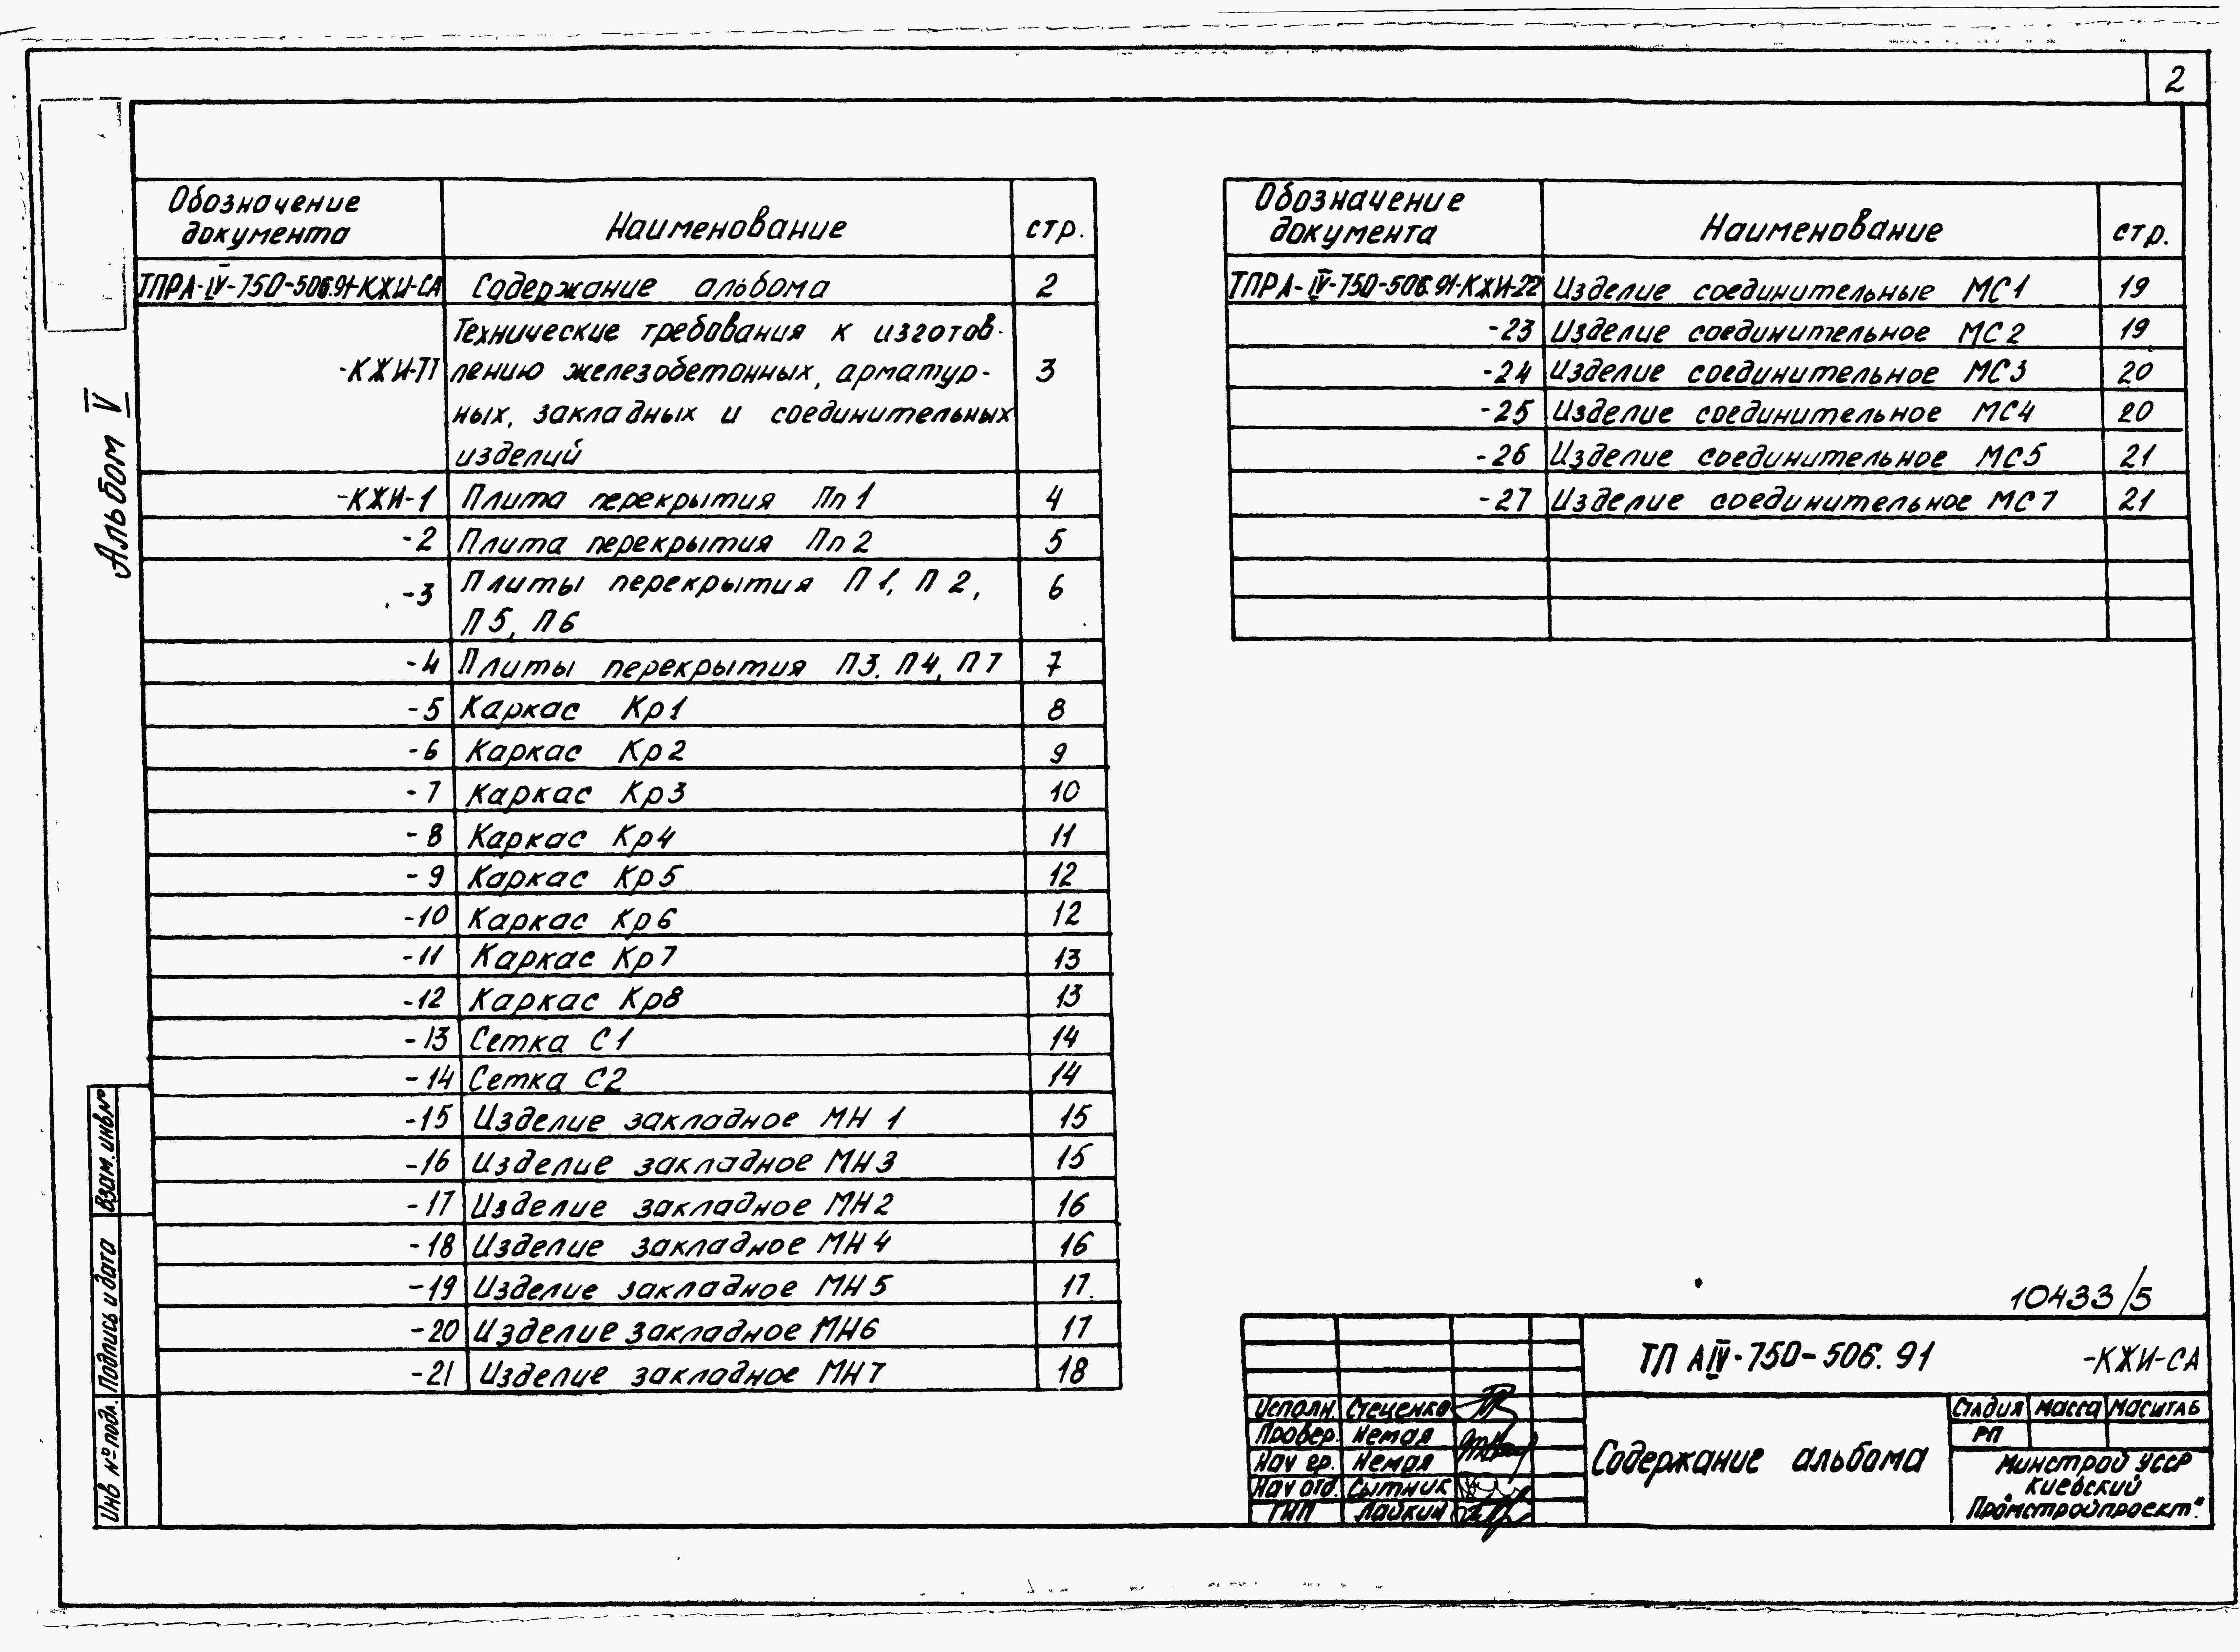 2
Альбом V
Обозначение документа Наименование стр.
ТПРА-IV-750-506.91-КЖИ-СА Содержание альбома 2
-КЖИ-ТТ Технические требования к изготов-
лению железобетонных, арматур- 3
ных, закладных и соединительных
изделий
-КЖИ-1 Плита перекрытия Пп1 4
-2 Плита перекрытия Пп2 5
-3 Плиты перекрытия П1, П2, 6
П5, П6
-4 Плиты перекрытия П3, П4, П7 7
-5 Каркас Кр1 8
-6 Каркас Кр2 9
-7 Каркас Кр3 10
-8 Каркас Кр4 11
-9 Каркас Кр5 12
-10 Каркас Кр6 12
-11 Каркас Кр7 13
-12 Каркас Кр8 13
-13 Сетка С1 14
-14 Сетка С2 14
-15 Изделие закладное МН1 15
-16 Изделие закладное МН3 15
-17 Изделие закладное МН2 16
-18 Изделие закладное МН4 16
-19 Изделие закладное МН5 17
-20 Изделие закладное МН6 17
-21 Изделие закладное МН7 18
Обозначение документа Наименование стр.
ТПРА-IV-750-506.91-КЖИ-22 Изделие соединительные МС1 19
-23 Изделие соединительное МС2 19
-24 Изделие соединительное МС3 20
-25 Изделие соединительное МС4 20
-26 Изделие соединительное МС5 21
-27 Изделие соединительное МС7 21
Взам. инв №
Подпись и дата
Инв № подл.
10433/5
ТП АIV-750-506.91 -КЖИ-СА
Исполн. Стеценко
Провер. Немая
Нач гр. Немая
Нач отд. Сытник
ГИП Лайкин
Содержание альбома
Стадия Масса Масштаб
РП
Минстрой УССР
Киевский
"Промстройпроект"